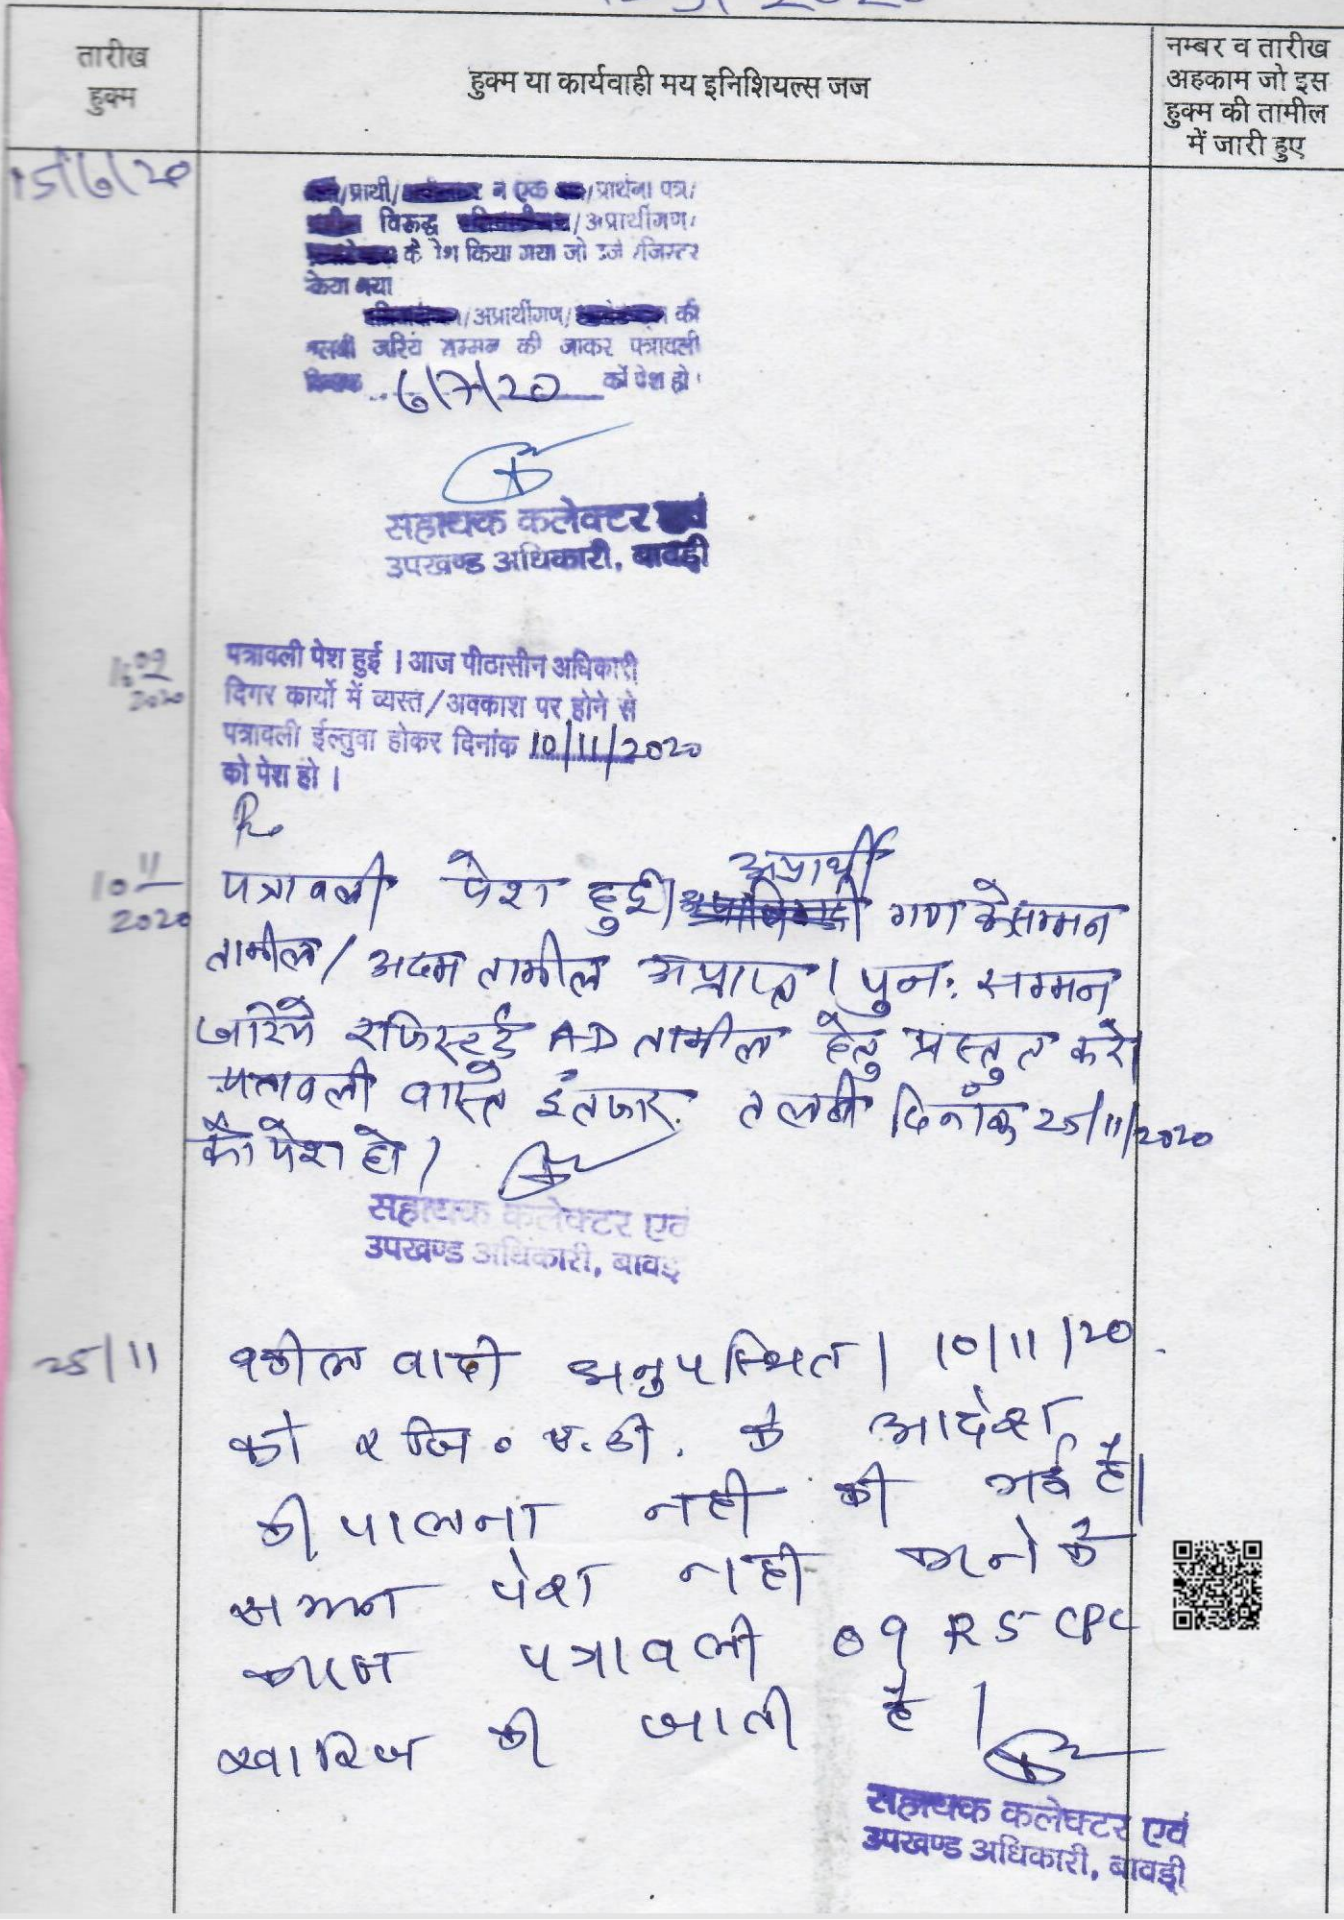 तारीख
हुक्म
हुक्म या कार्यवाही मय इनिशियल्स जज
नम्बर व तारीख
अहकाम जो इस
हुक्म की तामील
में जारी हुए
15/6/20
/प्रार्थी/ ने एक /प्रार्थना पत्र/
विरूद्ध /अप्रार्थीगण/
के पेश किया गया जो दर्ज रजिस्टर
किया गया
/अप्रार्थीगण/ की
तलबी जरिये सम्मन की जाकर पत्रावली
दिनांक 6/7/20 को पेश हो।
सहायक कलेक्टर एवं
उपखण्ड अधिकारी, बावड़ी
09
2020
पत्रावली पेश हुई । आज पीठासीन अधिकारी
दिगर कार्यो में व्यस्त/अवकाश पर होने से
पत्रावली ईल्तुवा होकर दिनांक 10/11/2020
को पेश हो ।
10 11
2020
पत्रावली पेश हुई। अप्रार्थी गण के सम्मन
तामील/अदम तामील अप्राप्त। पुनः सम्मन
जरिये रजिस्टर्ड AD तामील हेतु प्रस्तुत करे।
पत्रावली वास्ते इंतजार तलबी दिनाँक 25/11/2020
को पेश हो।
सहायक कलेक्टर एवं
उपखण्ड अधिकारी, बावड़ी
25/11
वकील वादी अनुपस्थित। 10/11/20
को रजि॰ ए.डी. के आदेश
की पालना नही की गई है।
सम्मन पेश नही करने के
कारण पत्रावली 09 R5 CPC
खारिज की जाती है।
सहायक कलेक्टर एवं
उपखण्ड अधिकारी, बावड़ी